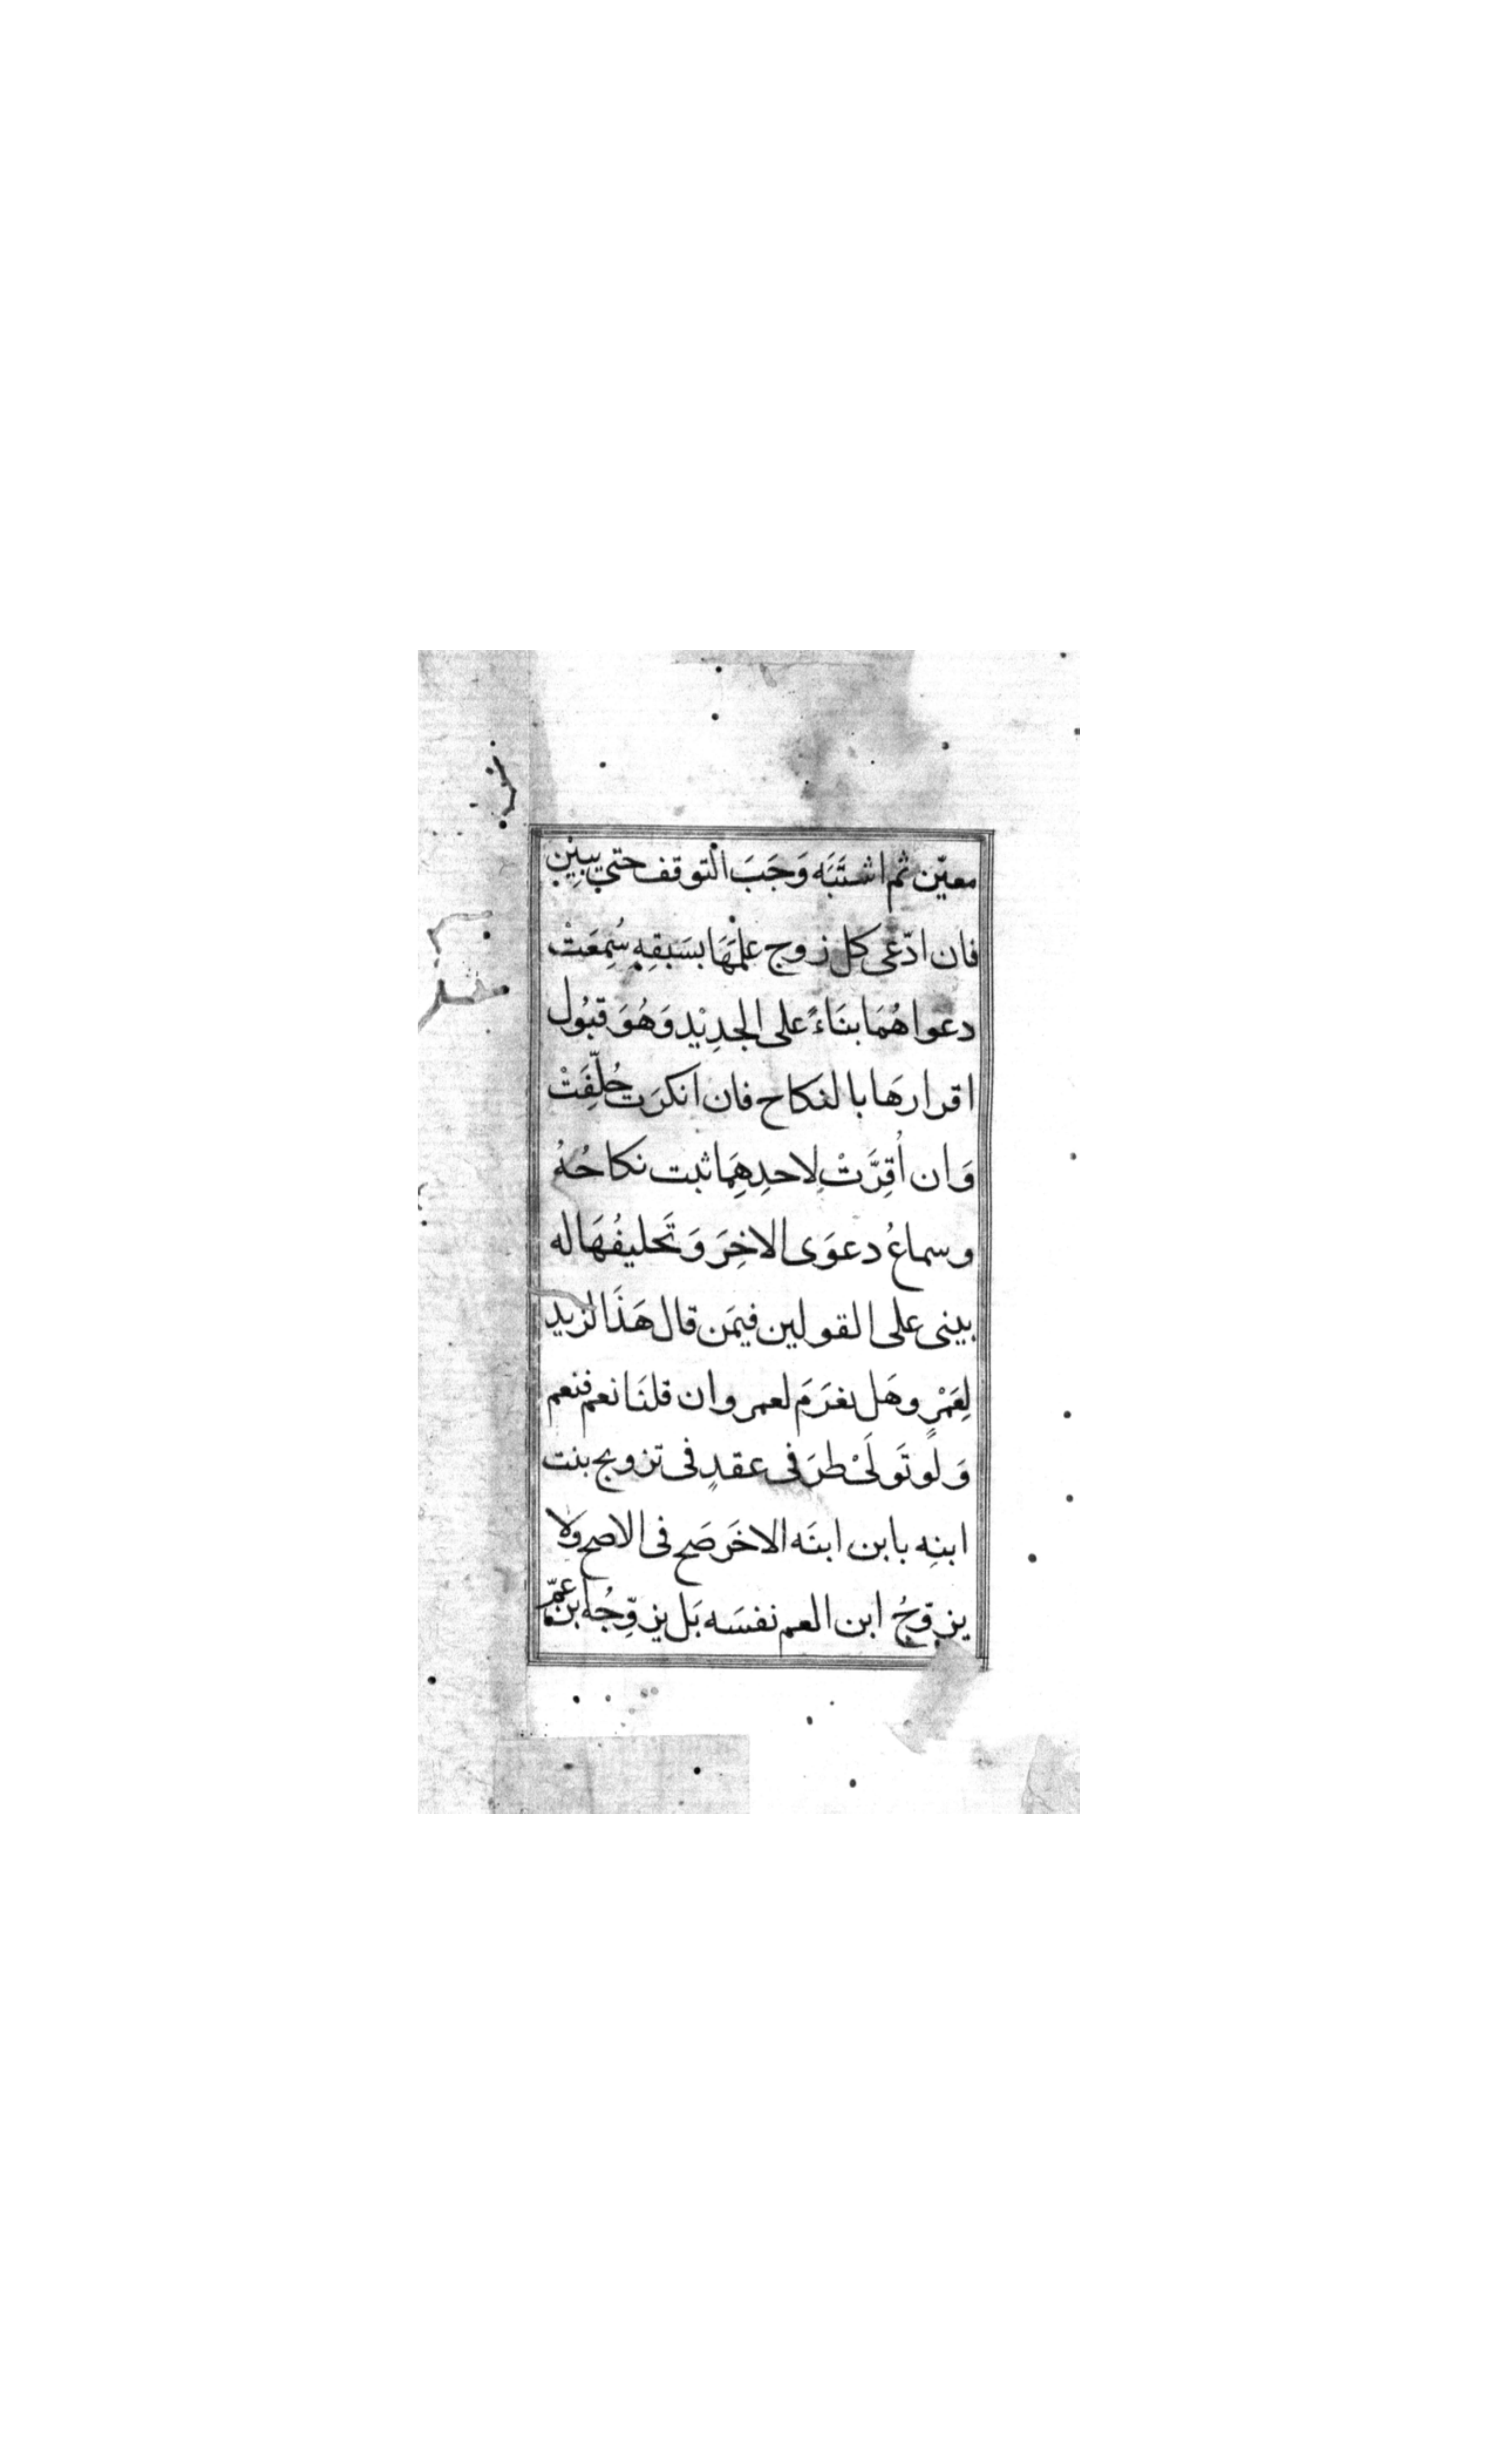 معيّن ثم اشتَبَه وَجَبَ التوقف حتي يبين
فان ادّعى كل زوج علمَهَا بسَبقِهِ سُمِعَتْ
دعواهُمَا بنَاءً على الجدِيْد وَهُوَ قبُول
اقرارهَا بالنكاح فان انكرَت حُلِّفَتْ
وَان اُقِرَّتْ لِاحدِهِمَا ثبت نكاحُهُ
وسماعُ دعوَى الاخِرَ وَتَحليفُهَا له
يبنى على القولين فيمَن قال هَذَا لزيد
لِعَمْرٍ وهَل يغرَمَ لعمر وان قلنَا نعم فنعم
وَلَو تَولَىْ طرَفى عقدٍ فى تزويج بنت
ابنِه بابن ابنَه الاخَر صَح فى الاصح ولا
يزوّجُ ابن العم نفسَه بَل يزوِّجُه ابن عمّ